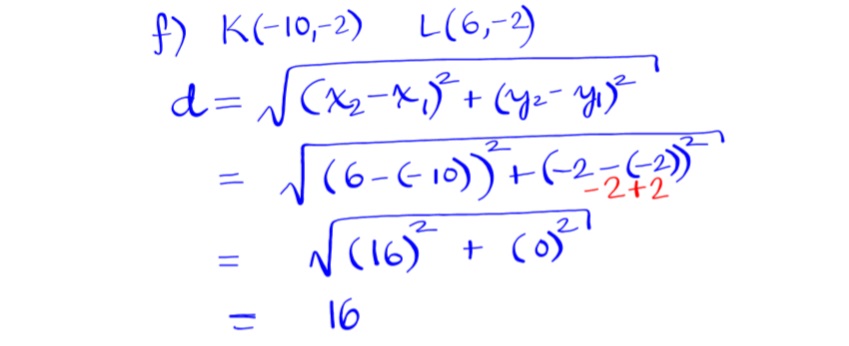 f) K(-10,-2) L(6,-2)
d = √(x₂-x₁)² + (y₂-y₁)²
= √(6-(-10))² + (-2-(-2))²
-2+2
= √(16)² + (0)²
= 16